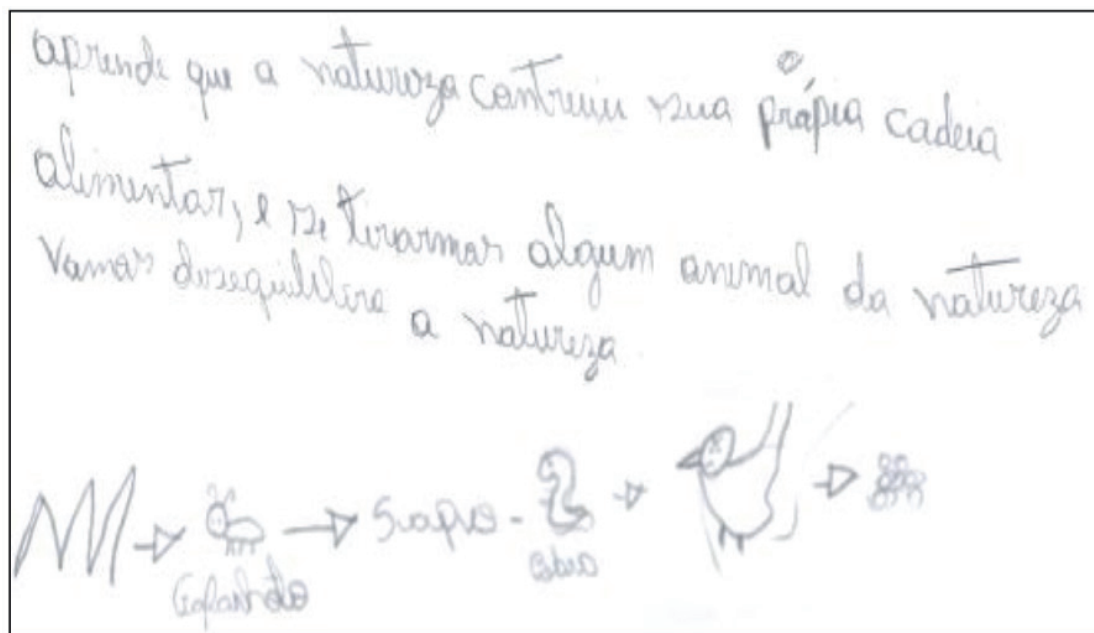 aprende que a natureza contruiu sua própia cadeia
alimentar, e se tirarmos algum animal da natureza
Vamos desequilibra a natureza
Gafanhoto
Sapo
cobra